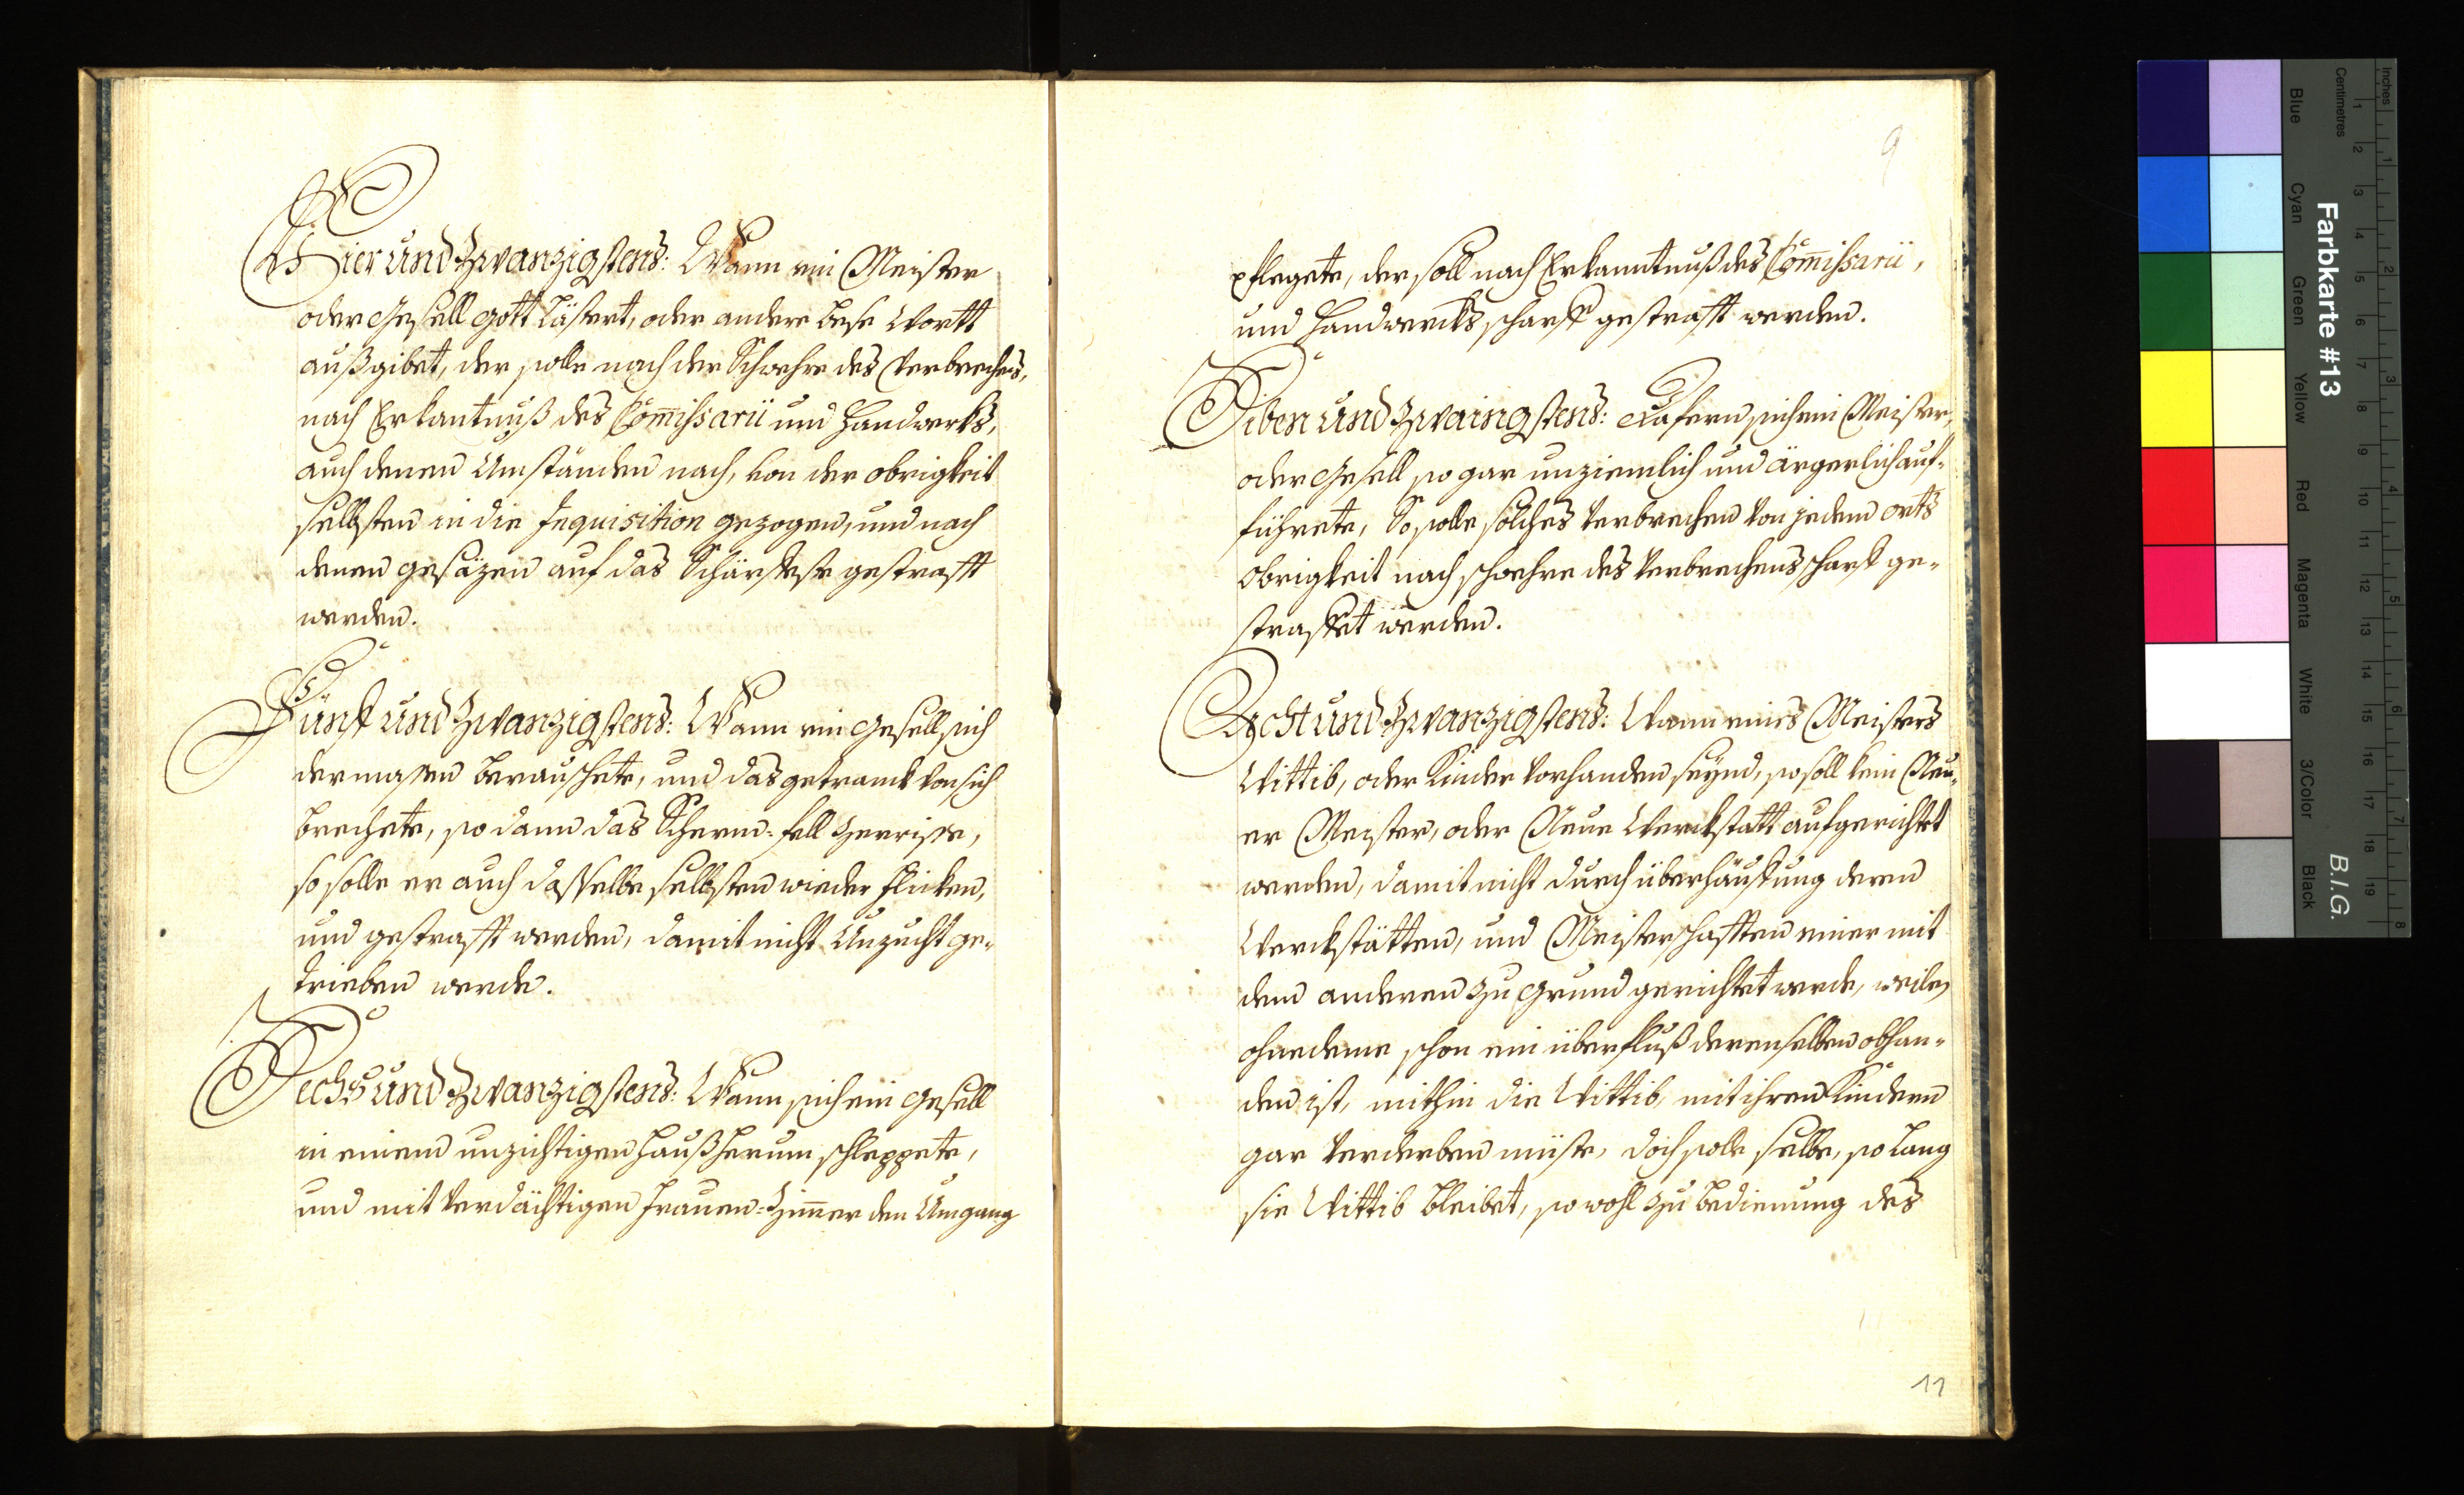 Vier und Zwanzigstens: Wann ein Meister
oder Gesell Gott lästert, oder andere bese Wortt
außgibet, der solle nach der Schwehre des Verbrechens,
nach Erkantnuß des Com̄issarii und Handwerks,
auch denen Umständen nach, von der obrigkeit
selbsten in die Inquisition gezogen, und nach
denen gesäzen auf das Schärfeste gestrafft
werden.
Fünf und Zwanzigstens: Wann ein Gesell sich
dermasen berauschete, und das getranck von sich
brechete, so dann das Scherm-fell zerrisse,
so solle er auch dasselbe selbsten wieder flicken,
und gestrafft werden, damit nicht Unzucht ge-
trieben werde.
Sechs und Zwanzigstens: Wann sich ein Gesell
in einem unzichtigen Hauß herum schleppete,
und mit verdächtigen Frauen-Zim̄er den Umgang
9
pflegete, der soll nach Erkanntnuß des Com̄issarii,
und Handwercks scharff gestrafft werden.
Siben und Zwaingstens: dafern sich ein Meister,
oder Gesell so gar unziemlich und ärgerlich auf-
führete, So solle solches verbrechen von jedem orts
obrigkeit nach schwehre des verbrechens scharf ge-
straffet werden.
Acht und Zwanzigstens: Wann eines Meisters
Wittib, oder Kinder vorhanden seynd, so soll kein Neu-
er Meister, oder Neue Werckstatt aufgerichtet
werden, damit nicht durch überhäufung deren
Werckstätten, und Meisterschafften einer mit
dem anderen zu grund gerichtet werde, weilen
ohnedeme schon ein überfluß derenselben obhan-
den ist, mithin die Wittib, mit ihren Kindern
gar verderben müste, doch solle selbe, so lang
sie Wittib bleibet, so wohl zu bedienung des
11
Inches
Centimetres
Farbkarte #13
B.I.G.
Blue
Cyan
Green
Yellow
Red
Magenta
White
3/Color
Black